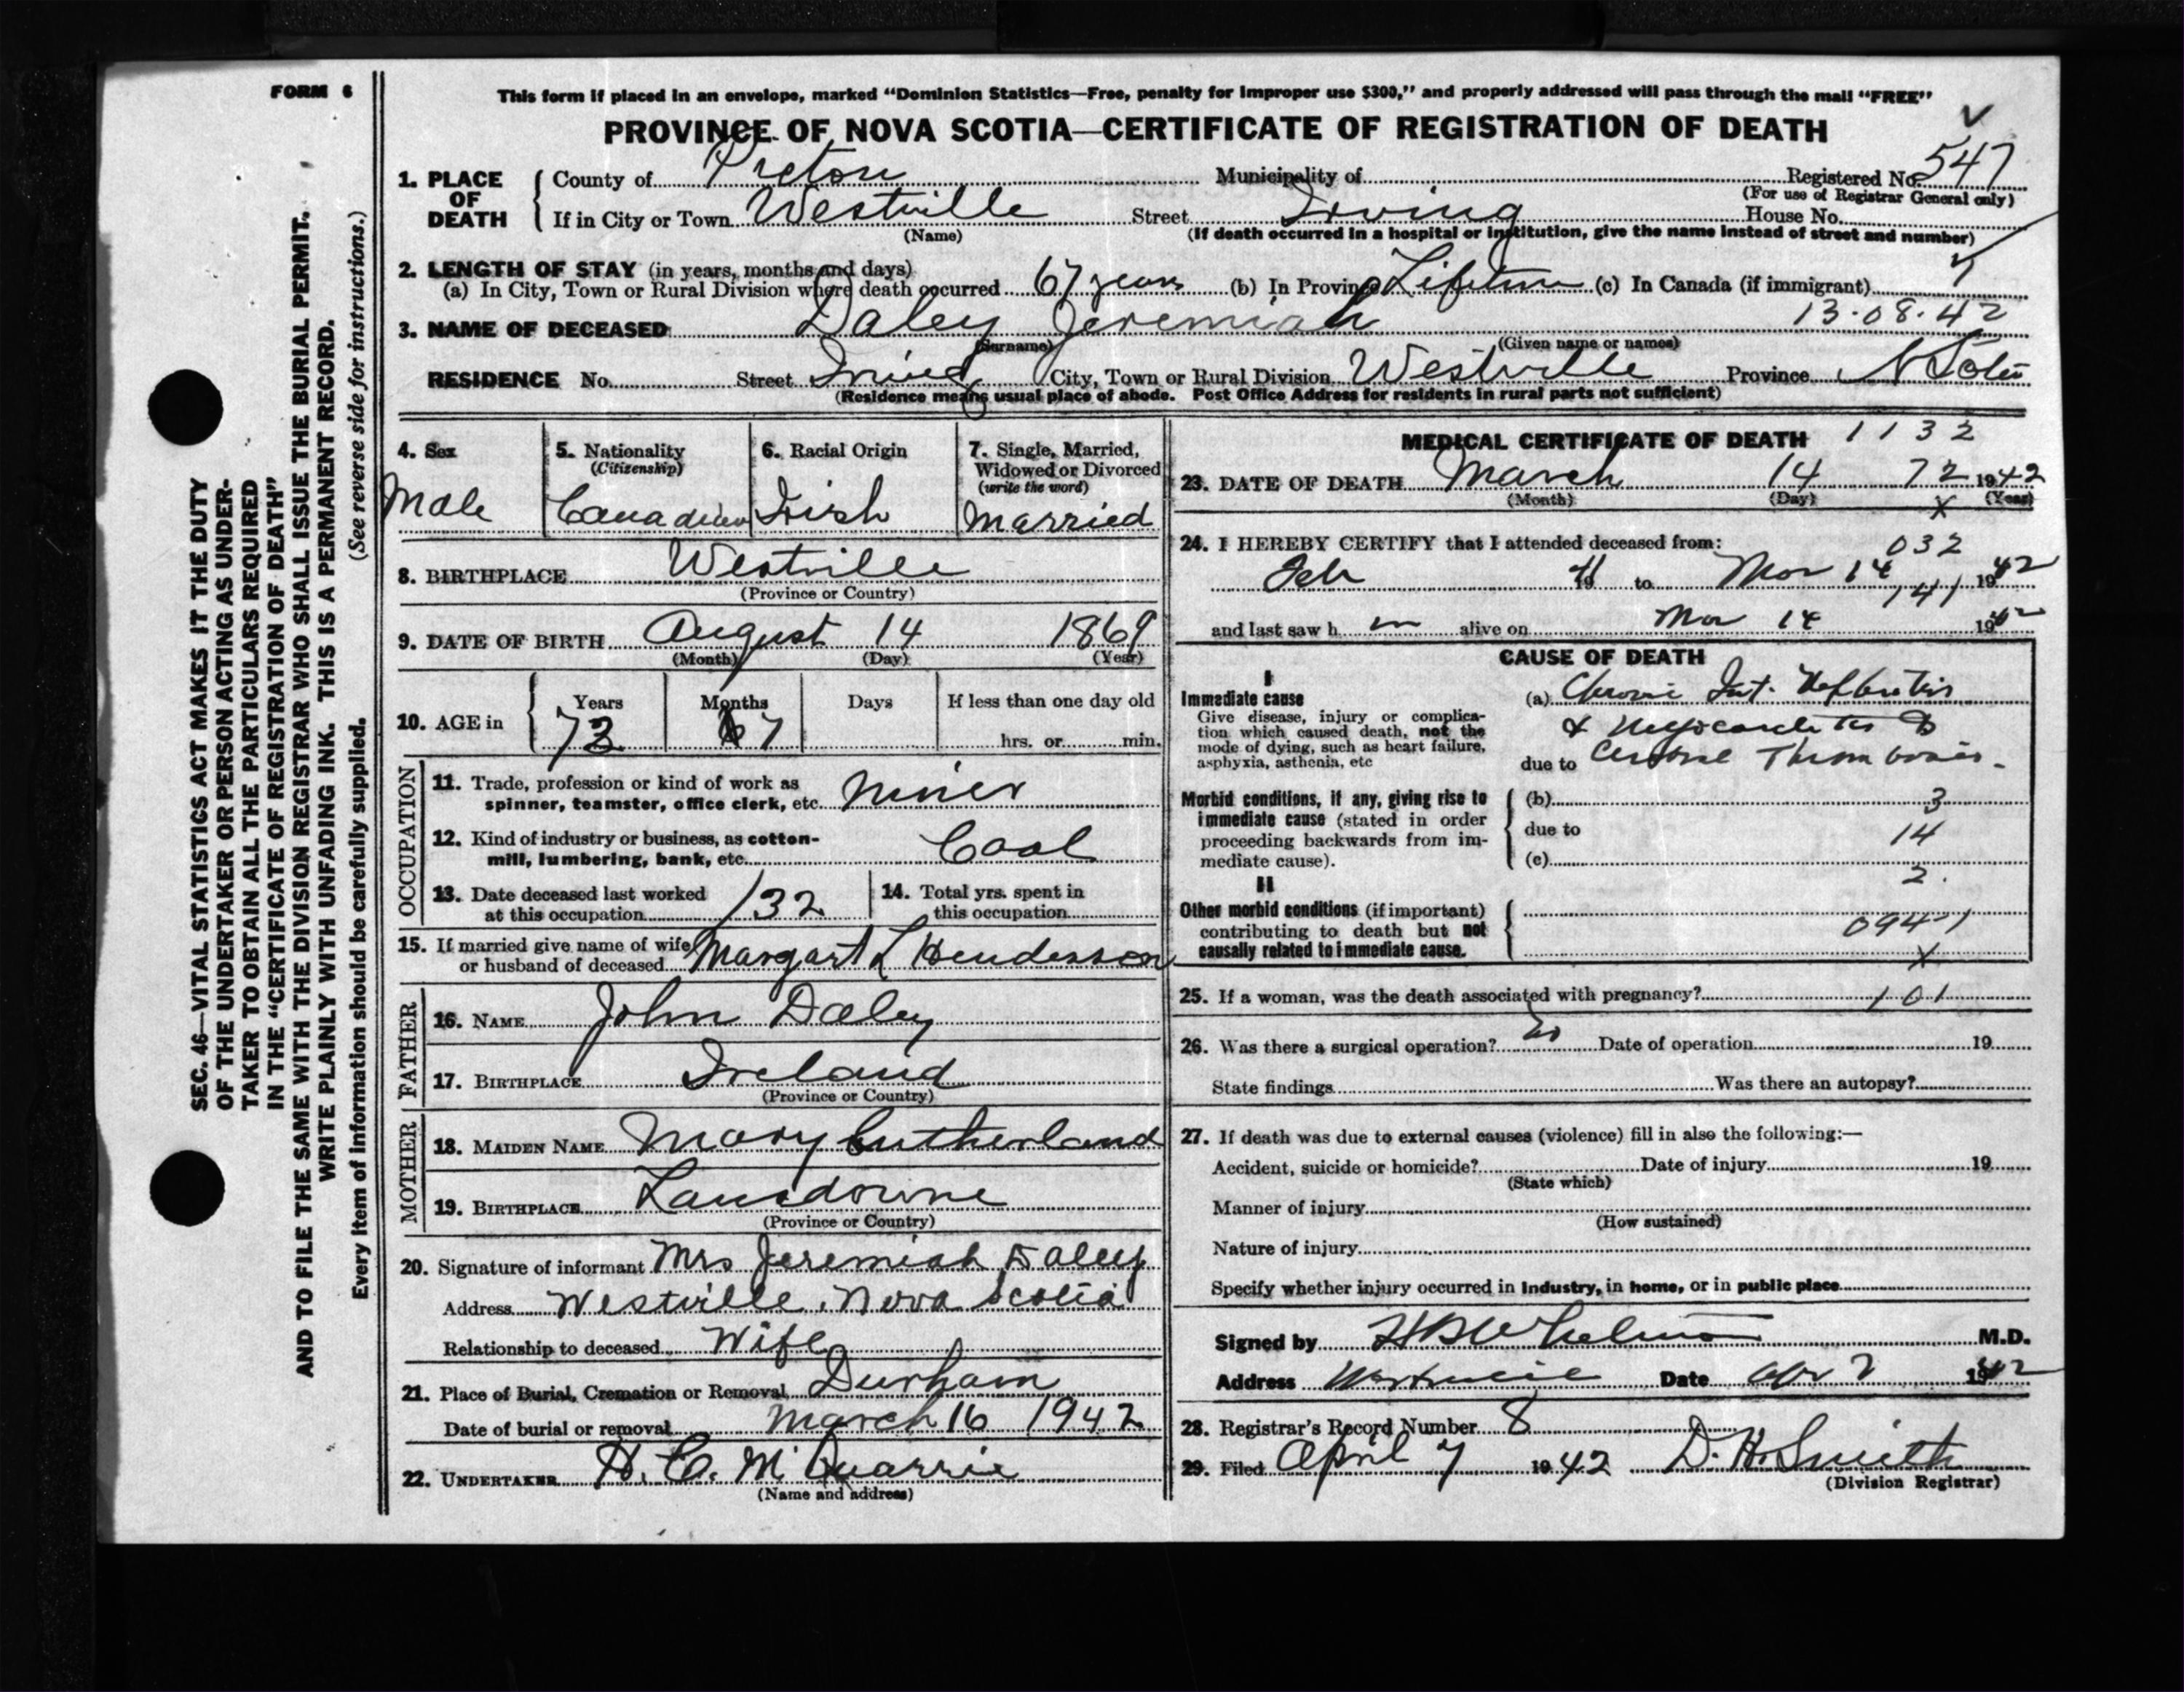 FORM 6
This form if placed in an envelope, marked “Dominion Statistics—Free, penalty for improper use $300,” and properly addressed will pass through the mail “FREE”
PROVINCE OF NOVA SCOTIA—CERTIFICATE OF REGISTRATION OF DEATH
1. PLACE OF DEATH
County of Pictou Municipality of Registered No. 547
(For use of Registrar General only)
If in City or Town Westville Street Irving House No.
(Name) (If death occurred in a hospital or institution, give the name instead of street and number)
2. LENGTH OF STAY (in years, months and days)
(a) In City, Town or Rural Division where death occurred 67 years (b) In Province Lifetime (c) In Canada (if immigrant)
13·08·42
3. NAME OF DECEASED Daley Jeremiah
(Surname) (Given name or names)
RESIDENCE No. Street Irving City, Town or Rural Division Westville Province N Scotia
(Residence means usual place of abode. Post Office Address for residents in rural parts not sufficient)
4. Sex
Male
5. Nationality
(Citizenship)
Canadian
6. Racial Origin
Irish
7. Single, Married,
Widowed or Divorced
(write the word)
Married
8. BIRTHPLACE Westville
(Province or Country)
9. DATE OF BIRTH August 14 1869
(Month) (Day) (Year)
10. AGE in
Years Months Days If less than one day old
72 7 hrs. or min.
OCCUPATION
11. Trade, profession or kind of work as
spinner, teamster, office clerk, etc. Miner
12. Kind of industry or business, as cotton-
mill, lumbering, bank, etc. Coal
13. Date deceased last worked
at this occupation 132
14. Total yrs. spent in
this occupation
15. If married give name of wife
or husband of deceased Margart L Henderson
FATHER
16. NAME John Daley
17. BIRTHPLACE Ireland
(Province or Country)
MOTHER
18. MAIDEN NAME Mary Sutherland
19. BIRTHPLACE Lansdowne
(Province or Country)
20. Signature of informant Mrs Jeremiah Daley
Address Westville, Nova Scotia
Relationship to deceased Wife
21. Place of Burial, Cremation or Removal Durham
Date of burial or removal March 16 1942
22. UNDERTAKER H. C. McQuarrie
(Name and address)
MEDICAL CERTIFICATE OF DEATH 1132
23. DATE OF DEATH March 14 72 1942
(Month) (Day) (Year)
X
24. I HEREBY CERTIFY that I attended deceased from:
032
Feb 19 to Mar 14 1942
141
and last saw h im alive on Mar 14 1942
CAUSE OF DEATH
I
Immediate cause
Give disease, injury or complica-
tion which caused death, not the
mode of dying, such as heart failure,
asphyxia, asthenia, etc
(a) Chronic Int. Nephritis
& Myocarditis
due to Cerebral Thrombosis.
Morbid conditions, if any, giving rise to
immediate cause (stated in order
proceeding backwards from im-
mediate cause).
(b) 3
due to 14
(c)
2.
II
Other morbid conditions (if important)
contributing to death but not
causally related to immediate cause.
094-1
X
25. If a woman, was the death associated with pregnancy? 101
26. Was there a surgical operation? No Date of operation 19
State findings Was there an autopsy?
27. If death was due to external causes (violence) fill in also the following:—
Accident, suicide or homicide? Date of injury 19
(State which)
Manner of injury
(How sustained)
Nature of injury
Specify whether injury occurred in industry, in home, or in public place
Signed by M.D.
Address Westville Date Apr 2 1942
28. Registrar's Record Number 8
29. Filed April 7 1942 D. H. Smith
(Division Registrar)
SEC. 46—VITAL STATISTICS ACT MAKES IT THE DUTY
OF THE UNDERTAKER OR PERSON ACTING AS UNDER-
TAKER TO OBTAIN ALL THE PARTICULARS REQUIRED
IN THE “CERTIFICATE OF REGISTRATION OF DEATH”
AND TO FILE THE SAME WITH THE DIVISION REGISTRAR WHO SHALL ISSUE THE BURIAL PERMIT.
WRITE PLAINLY WITH UNFADING INK. THIS IS A PERMANENT RECORD.
Every item of information should be carefully supplied. (See reverse side for instructions.)